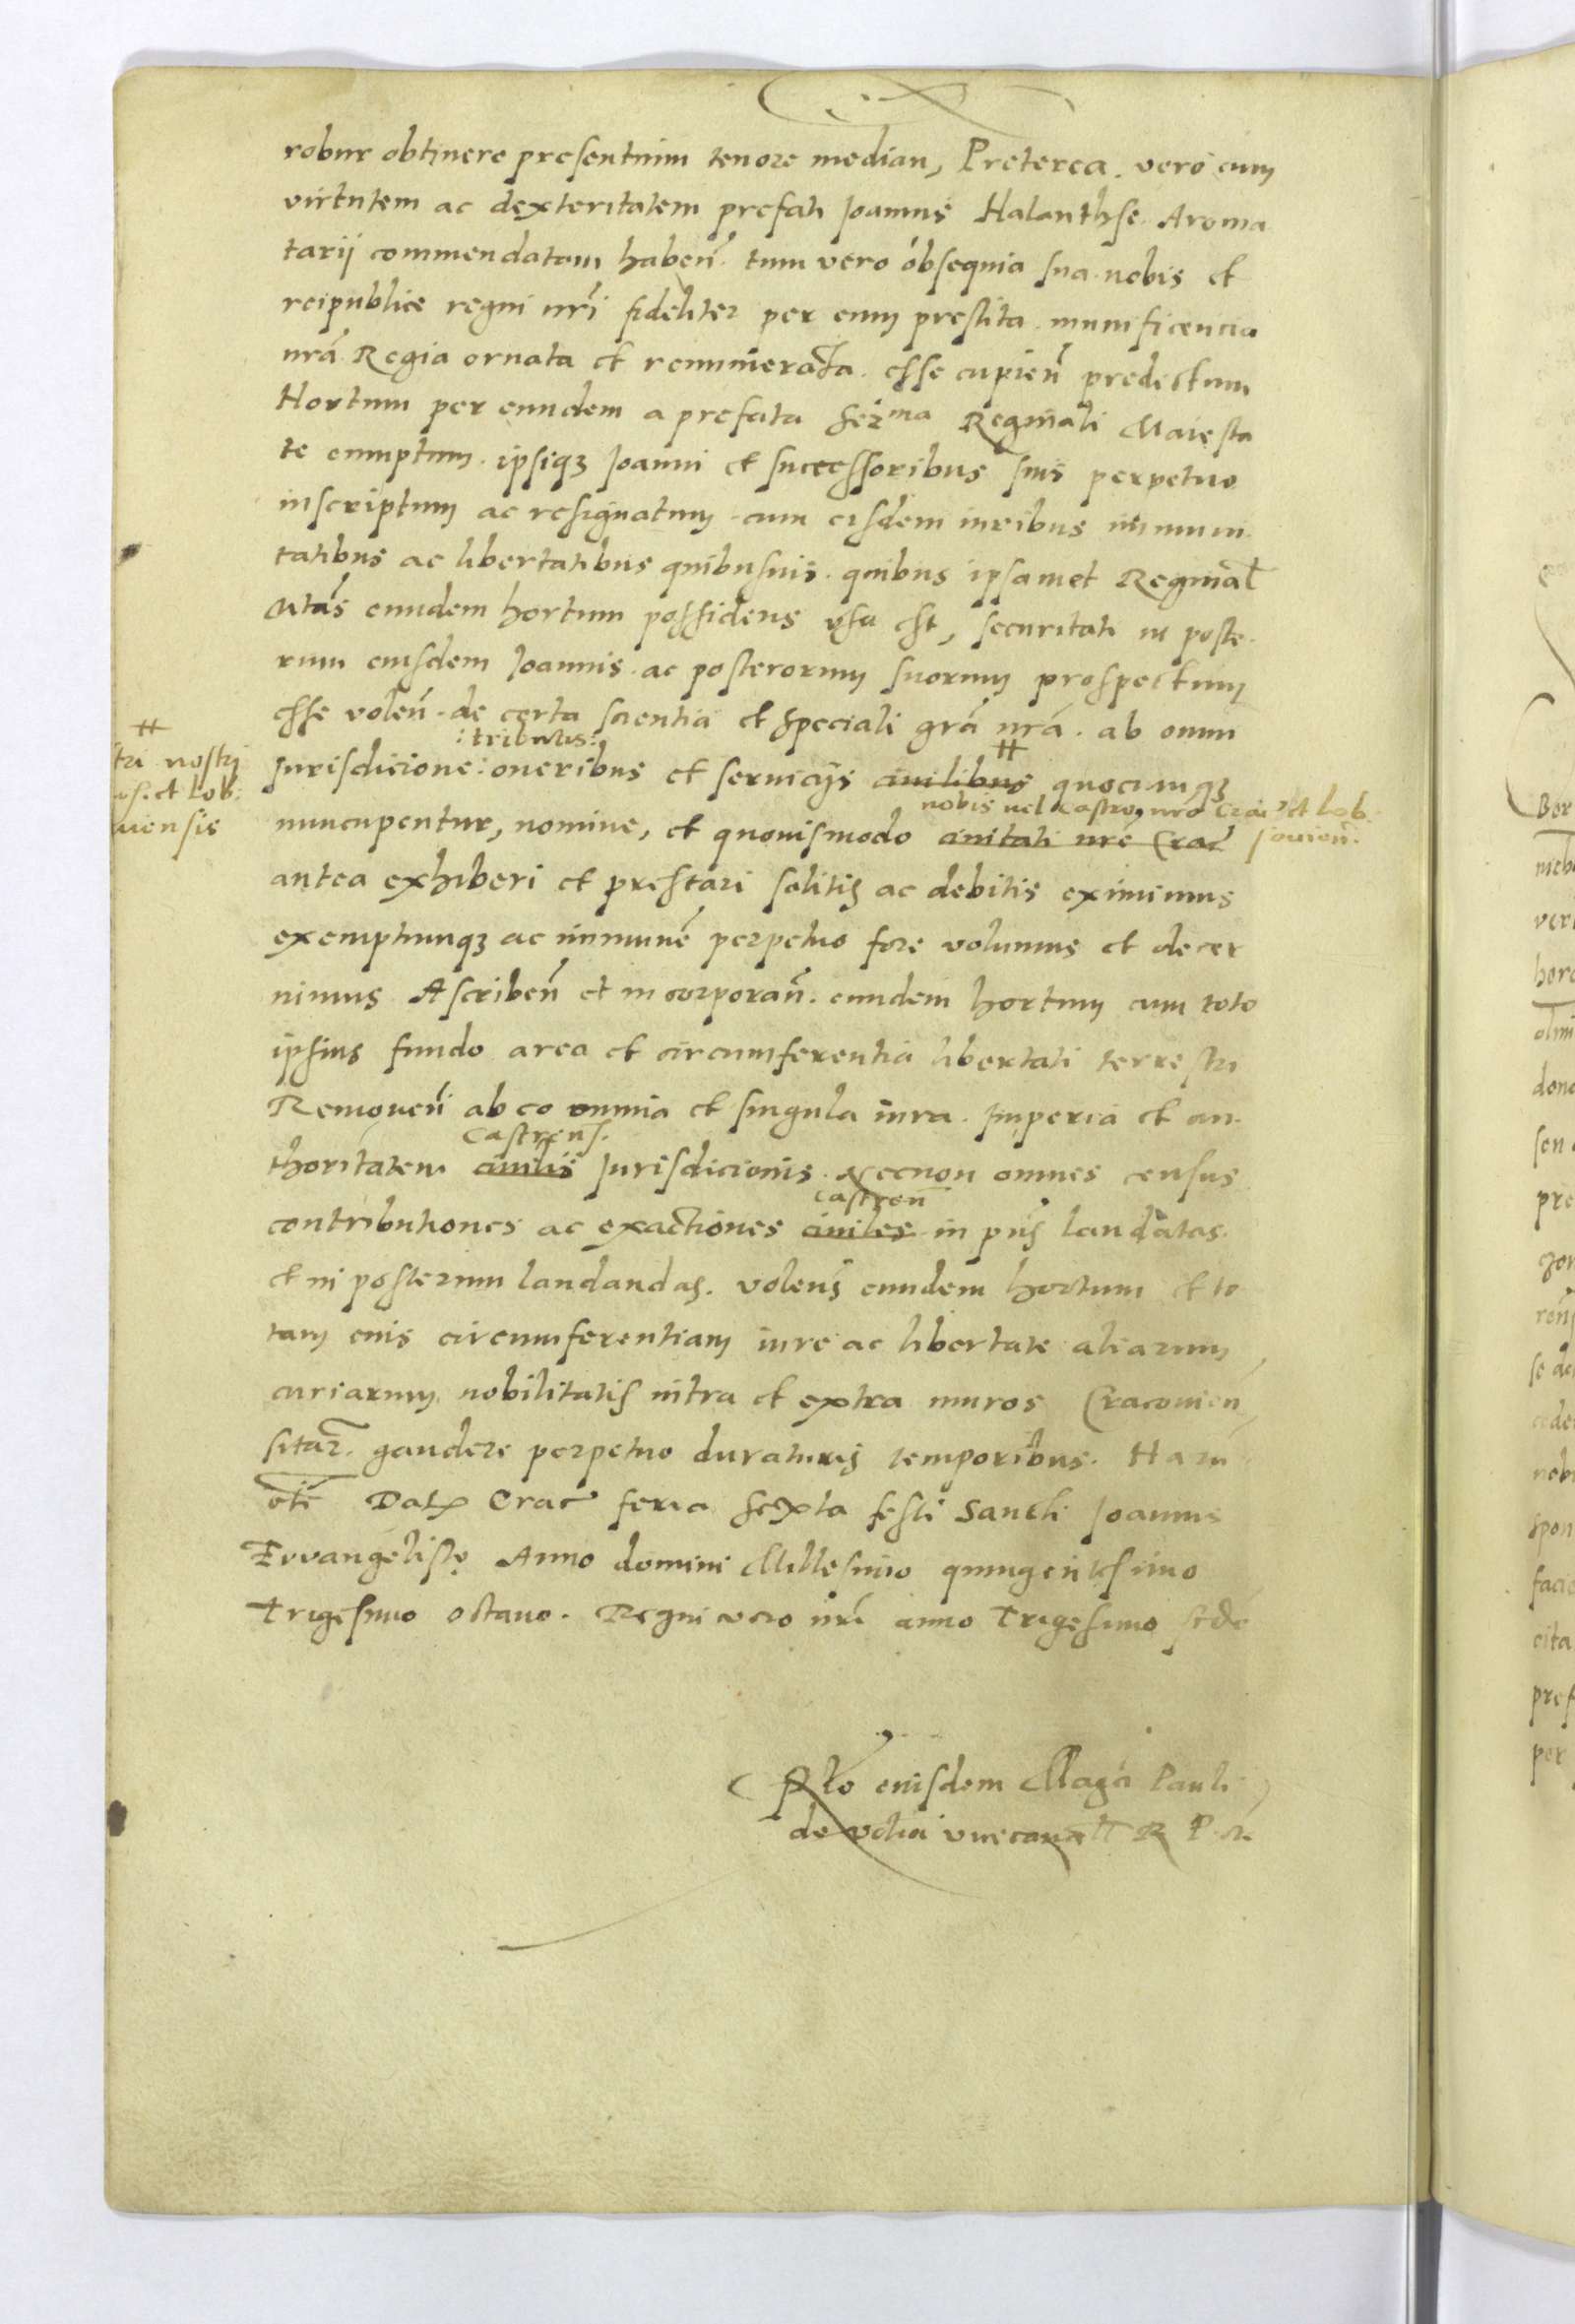 robur obtinere presentium tenore median, Preterea. vero cum
virtutem ac dexteritatem prefati Joannis Halanthse. Aroma
tarij commendatam haben̄. tum vero obsequia sua. nobis et
reipublice regni nr̄i fideliter per eum prestita. munificencia
nrā Regia ornata et remunerata. esse cupien̄ predictum
Hortum per eundem a prefata Serma Reginali Maiesta
te emptum. ipsiqз Joanni et successoribus suis perpetuo
inscriptum ac resignatum. cum eisdem iuribus immuni
tatibus ac libertatibus quibusuis. quibus ipsamet Reginal
Mtas eundem hortum possidens vsa est, securitati in poste.
rum eiusdem Joannis. ac posterorum suorum prospectum
esse volen̄. de certa scientia et speciali grā nrā. ab omni
:tributis:
Jurisdicione: oneribus et seruicijs ciuilibus # quocumqз
#
tri nostri
et Lob:
uiensis
nobis uel Castro nr̄o Crac̄ et Lob:
souien̄.
nuncupentur, nomine, et quouismodo ciuitati nr̄e Crac̄
antea exhiberi et prestari solitis ac debitis eximimus
exemptumqз ac immunē perpetuo fore volumus et decer
nimus Ascriben̄ et incorporan̄. eundem hortum cum toto
ipsius fundo area et circumferentia libertati terrestri
Remouen̄ ab eo omnia et singula iura. Imperia et au.
Castrens.
thoritatem ciuilis Jurisdicionis. Necnon omnes census
Castren̄
contributiones ac exactiones ciuiles in pn̄s laudatas.
et in posterum laudandas. volens eundem hortum et to
tam euis circumferentiam iure ac libertate aliarum
curiarum nobilitatis intra et extra muros Cracouien̄
sitar. gaudere perpetuo duraturis temporibus. Haru
etc̄ Dat Crac̄ feria sexta festi Sancti Joannis
Ewangelistę Anno domini Millesimo quingentesimo
Trigesimo octauo. Regni vero nr̄i anno Trigesimo sc̄do
Rlo euisdem Magci Pauli
de volia vicecancell R P